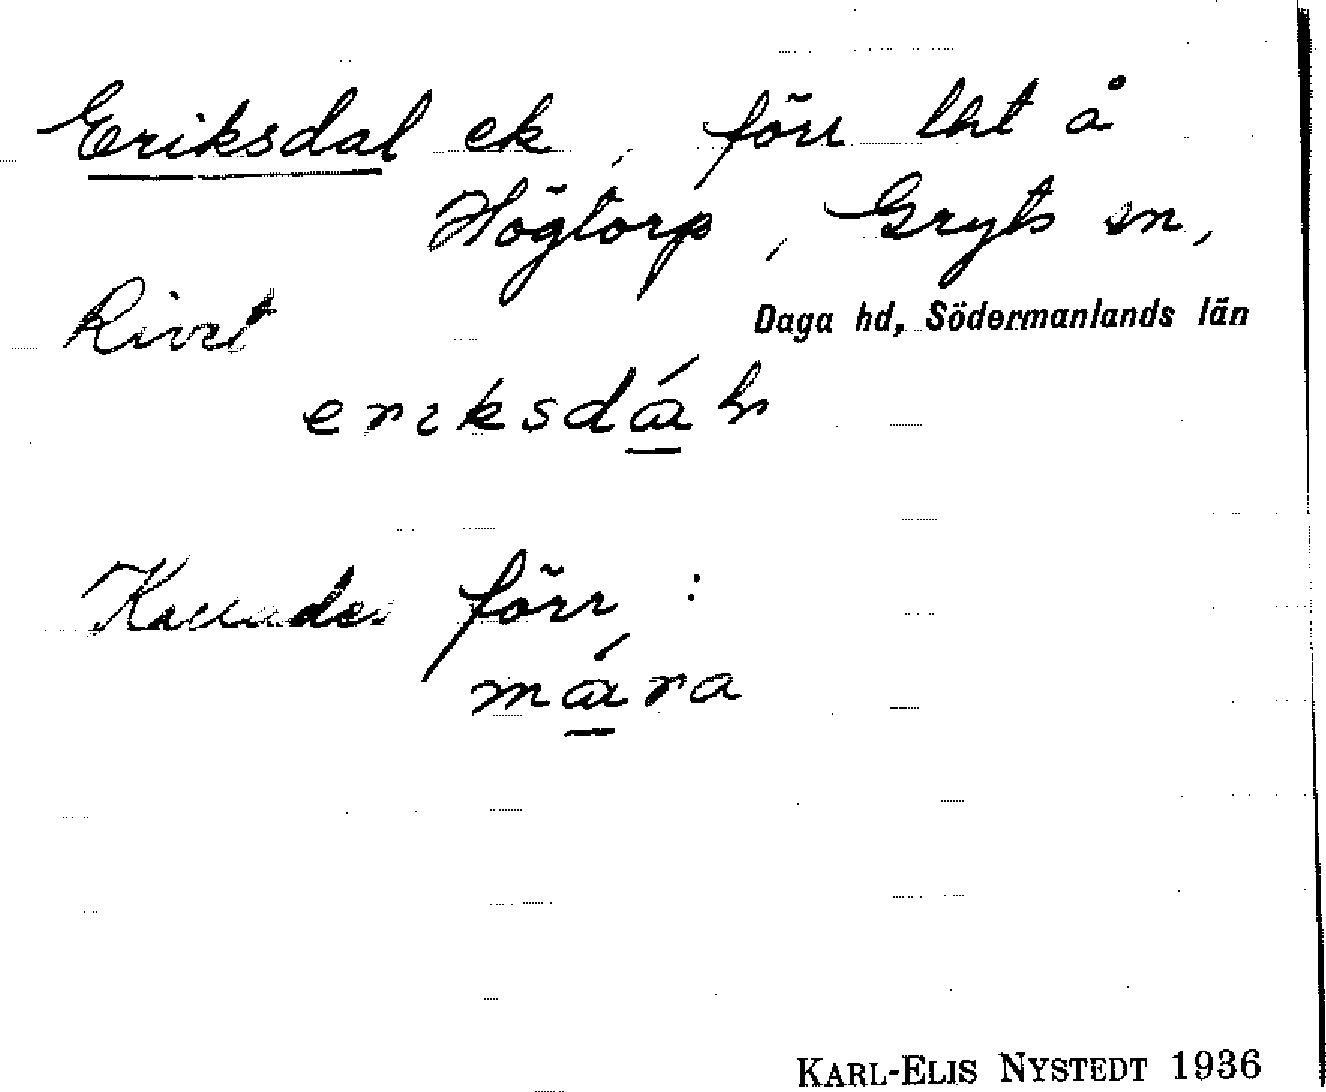 Eriksdal ek, förr lht å
Högtorp, Gryts sn,
Rivet
Daga hd, Södermanlands län
Kallades förr:
mára
KARL-ELIS NYSTEDT 1936